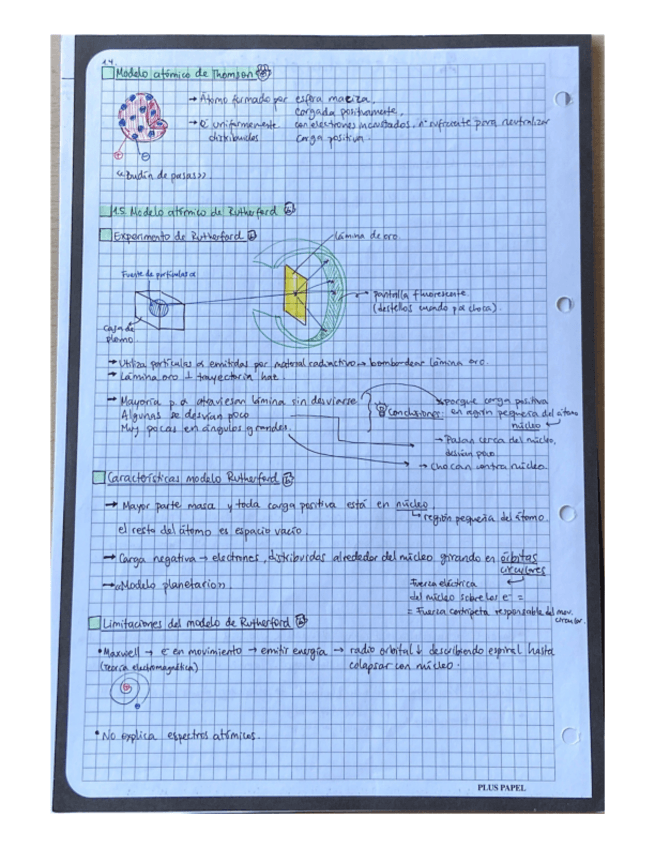 1.4.
Modelo atómico de Thomson
→ Átomo formado por esfera maciza,
cargada positivamente,
→ e⁻ uniformemente con electrones incrustados, nº suficiente para neutralizar
distribuidos carga positiva.
+ -
«Budín de pasas».
1.5. Modelo atómico de Rutherford
Experimento de Rutherford
Lámina de oro.
Fuente de partículas α
pantalla fluorescente
(destellos cuando p α choca).
Caja de
plomo
→ Utiliza partículas α emitidas por material radiactivo → bombardear lámina oro.
→ Lámina oro ⊥ trayectoria haz.
→ Mayoría p. α atraviesan lámina sin desviarse
Algunas se desvían poco
Muy pocas en ángulos grandes.
Conclusiones:
porque carga positiva
en región pequeña del átomo
núcleo
→ Pasan cerca del núcleo,
desvían poco
→ chocan contra núcleo.
Características modelo Rutherford
→ Mayor parte masa y toda carga positiva está en núcleo
región pequeña del átomo
el resto del átomo es espacio vacío
→ Carga negativa → electrones, distribuidos alrededor del núcleo girando en órbitas
circulares
→ «Modelo planetario».
Fuerza eléctrica
del núcleo sobre los e⁻ =
= Fuerza centrípeta responsable del mov.
circular.
Limitaciones del modelo de Rutherford
• Maxwell → e⁻ en movimiento → emitir energía → radio orbital ↓ describiendo espiral hasta
(teoría electromagnética) colapsar con núcleo.
• No explica espectros atómicos.
PLUS PAPEL